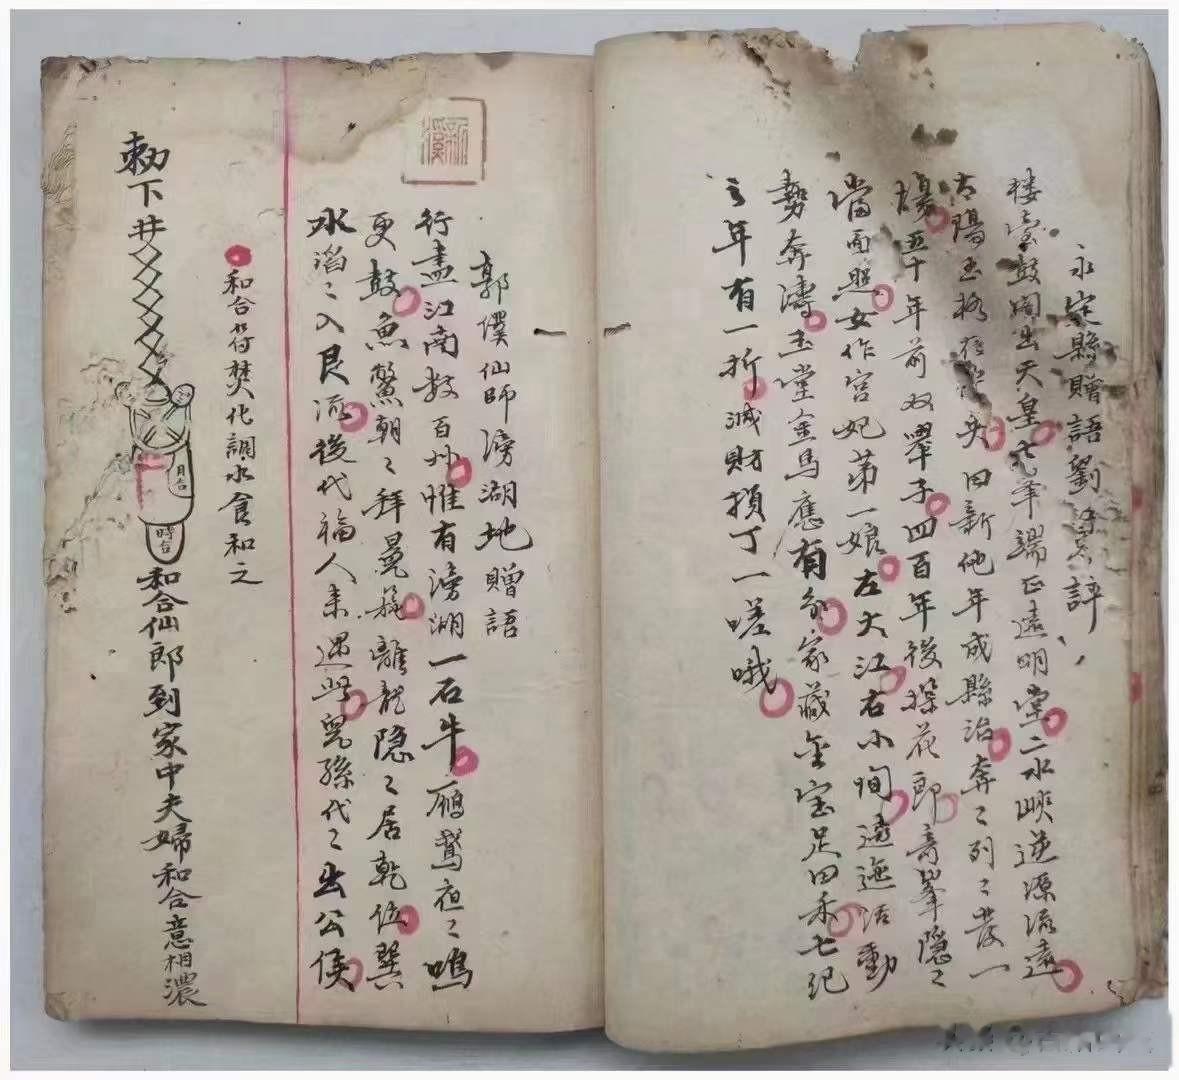 永定縣贈語劉
樓臺鼓閣出天皇七筆端正遠明堂二水峽逆源流遠
太陽玉 頭回新他年成縣治奔〻列〻發一
場五十年前双舉子四百年後探花郎奇峯隱〻
當面照女作宮妃第一娘左大江右小 遠迤活動
勢奔濤玉堂金馬應有分家藏金宝足 七紀
之年有一折減財損丁一嗟哦
新
郭僕仙師滂湖地贈語
行盡江南数百州惟有滂湖一石牛鴈鵞夜〻鳴
更鼓魚鱉朝〻拜冕旒離龍隐〻居乾位巽
水滔〻入艮流後代福人来遇此兒孫代〻出公侯
和合符焚化調水食和之
勅下井
月合
時合
和合仙郎到家中夫婦和合意相濃